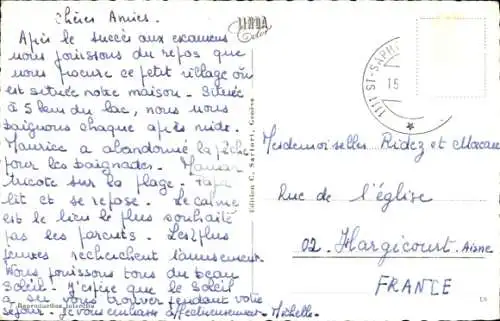 Chères Amies.
Après le succès aux examens
nous jouissons du repos que
nous procure ce petit village où
est située notre maison. Située
à 5 km du lac, nous nous
baignons chaque après midi.
Maurice a abandonné la pêche
pour les baignades. Maman
tricote sur la plage. Papa
lit et se repose. Le calme
est le lieu le plus souhaité
pas les parents. Les plus
jeunes recherchent l'amusement.
Nous jouissons tous du beau
Soleil. J'espère que le Soleil
a su vous trouver pendant votre
séjour. Je vous embrasse affectueusement. Michelle.
Reproduction interdite
LINDA
Color
Edition C. Sartori, Genève
1111 ST-SAPH
15
Mesdemoiselles Ridez et Macaux
Rue de l'église
02. Hargicourt. Aisne
FRANCE